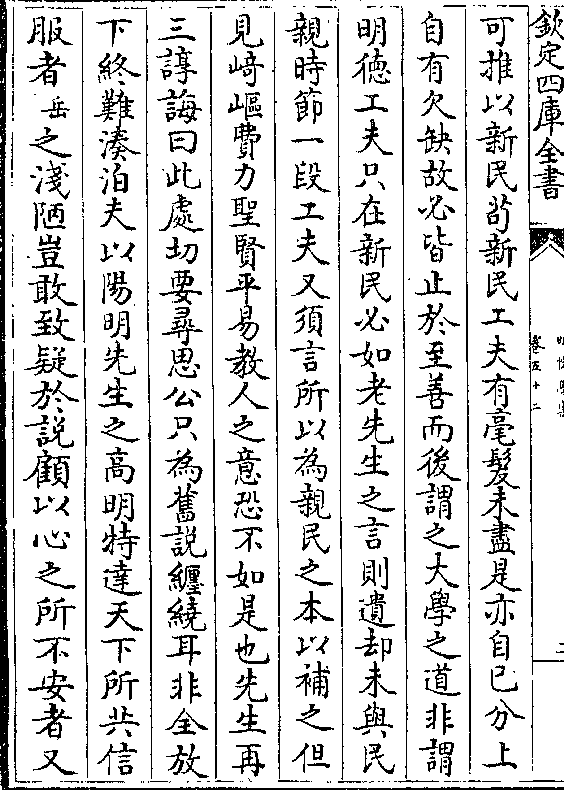 欽定四庫全書
卷五十二
可推以新民茍新民工夫有毫髮未盡是亦自己分上
自有欠缺故必皆止於至善而後謂之大學之道非謂
明徳工夫只在新民必如老先生之言則遺却未與民
親時節一段工夫又須言所以為親民之本以補之但
見﨑嶇費力聖賢平易教人之意恐不如是也先生再
三諄誨曰此處切要尋思公只為舊説纒繞耳非全放
下終難湊泊夫以陽明先生之髙明特達天下所共信
服者岳之淺陋豈敢致疑於説顧以心之所不安者又